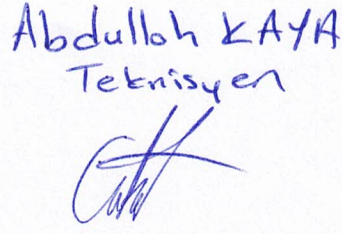 Abdulloh KAYA
Teknisyen